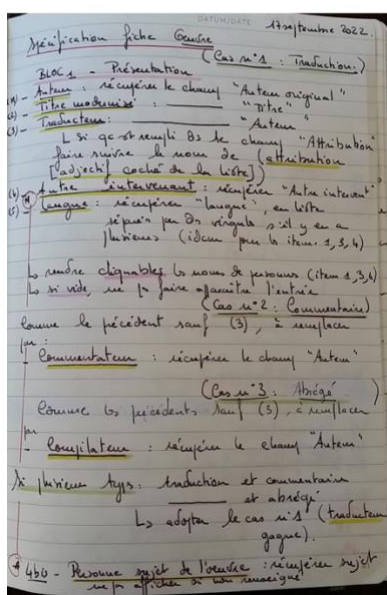 DATUM/DATE 17 septembre 2022.
Spécification fiche Oeuvre
(Cas n°1 : Traduction.)
BLOC 1 - Présentation
(1) - Auteur : récupérer le champ "Auteur original"
(2) - Titre modernisé : ——— "Titre"
(3) - Traducteur : ——— "Auteur"
L si qc est rempli ds le champ "Attribution"
faire suivre le nom de (attribution
[adjectif coché de la liste])
(4) - Autre intervenant : récupérer "Autre intervenant"
(5) - Langue : récupérer "langue", en liste
séparés par des virgules s'il y en a
plusieurs (idem pour les item. 1, 3, 4)
↳ rendre cliquables les noms de personnes (item 1, 3, 4)
↳ si vide, ne pas faire apparaître l'entrée
(Cas n°2 : Commentaire)
Comme le précédent sauf (3), à remplacer
par :
- Commentateur : récupérer le champ "Auteur"
(Cas n°3 : Abrégé)
Comme les précédents sauf (3), à remplacer
par
- Compilateur : récupérer le champ "Auteur"
Si plusieurs types : traduction et commentaire
——— et abrégé
↳ adopter le cas n°1 (traducteur
gagne).
4bis - Personne sujet de l'oeuvre : récupérer sujet
ne pas afficher si non renseigné